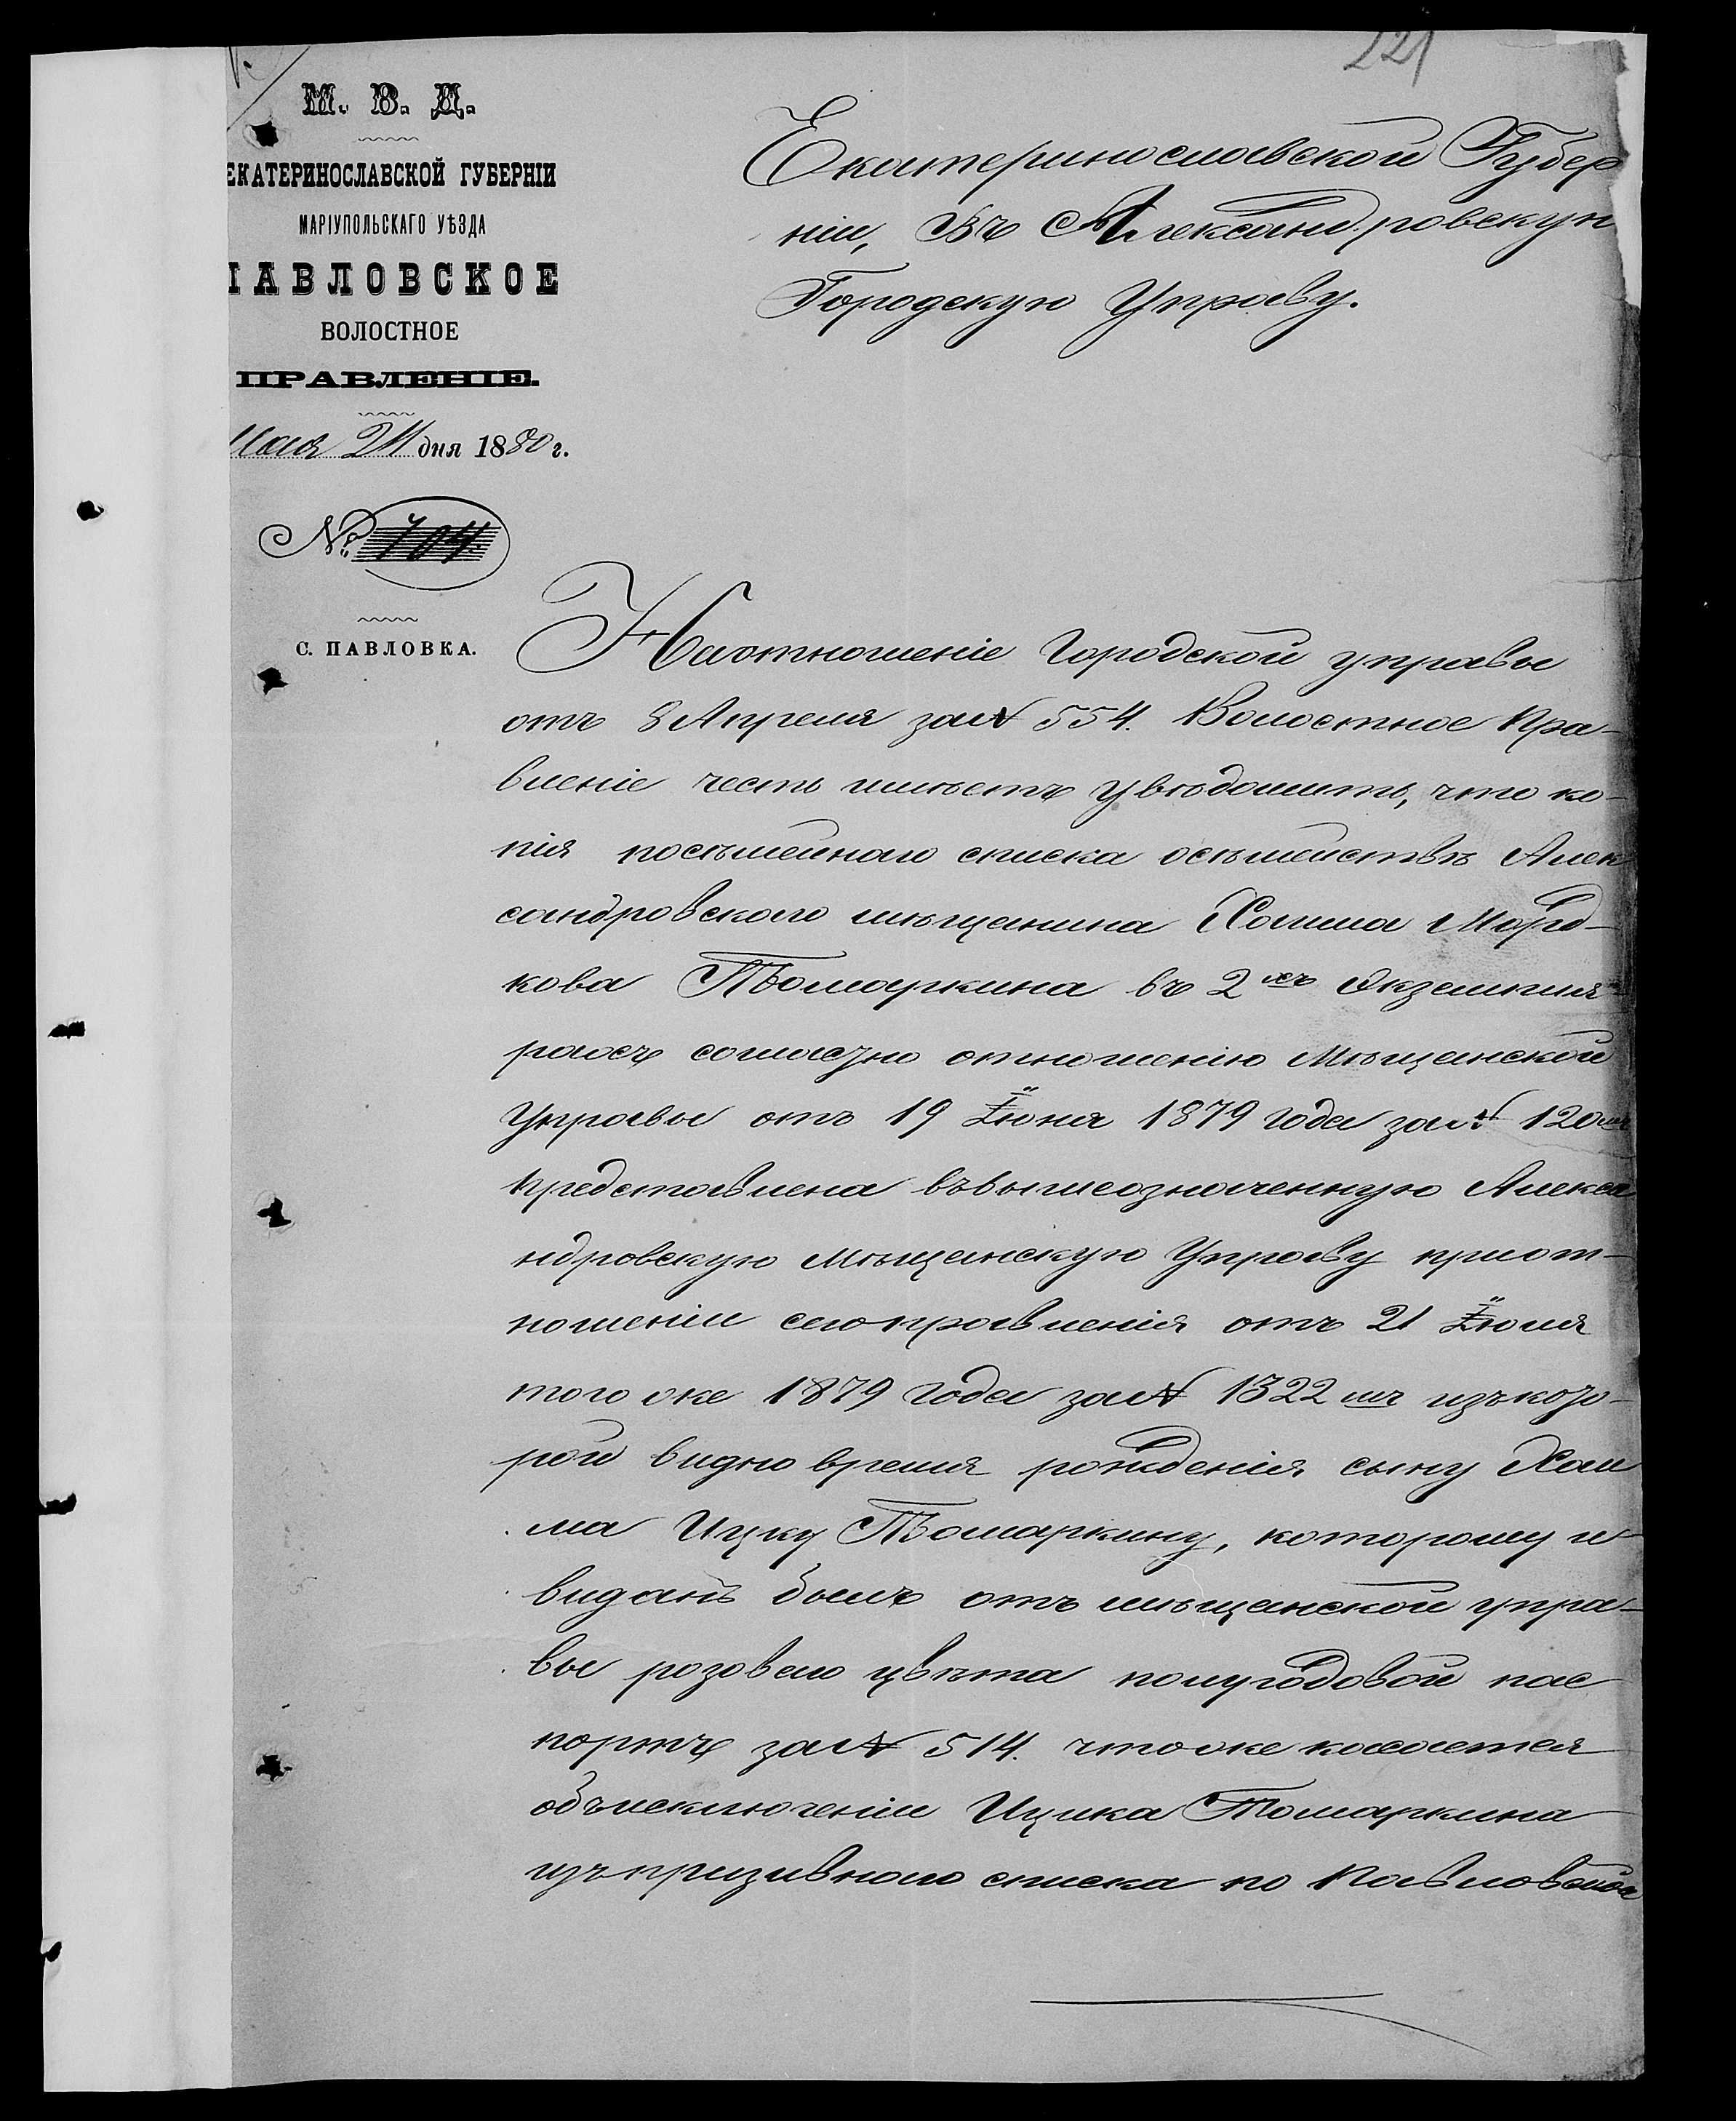 221
М. В. Д.
ЕКАТЕРИНОСЛАВСКОЙ ГУБЕРНІИ
МАРІУПОЛЬСКАГО УѢЗДА
ПАВЛОВСКОЕ
ВОЛОСТНОЕ
ПРАВЛЕНІЕ.
Мая 21 дня 1880 г.
№ 704.
С. ПАВЛОВКА.
Екатеринославской Губер
ніи, Въ Александровскую
Городскую Управу.
Наотношеніе Городской управы
отъ 8 Апреля за N 554. Волостное Пра-
вленіе честь имѣетъ увѣдомить, что ко-
пія посѣмейнаго списка осѣмействѣ Алек
сандровскаго мѣщанина Хаима Морд-
кова Томаркина въ 2хъ Экземпля-
рахъ согласно отношенію Мѣщанской
Управы отъ 19 Іюня 1879 года за N 120мъ
представлена въвышеозначенную Алекса
ндровскую Мѣщанскую Управу приот-
ношеніи сегоправленія отъ 21 Іюля
того же 1879 года за N 1322мъ изъкото-
рой видно время рожденія сыну Хаи
ма Ицку Томаркину, которому и
виданъ былъ отъ мѣщанской упра-
вы розоваго цвѣта полугодовой пас
портъ за N 514. чтоже касается
объисключеніи Ицика Томаркина
изъпризивного списка по Павловской